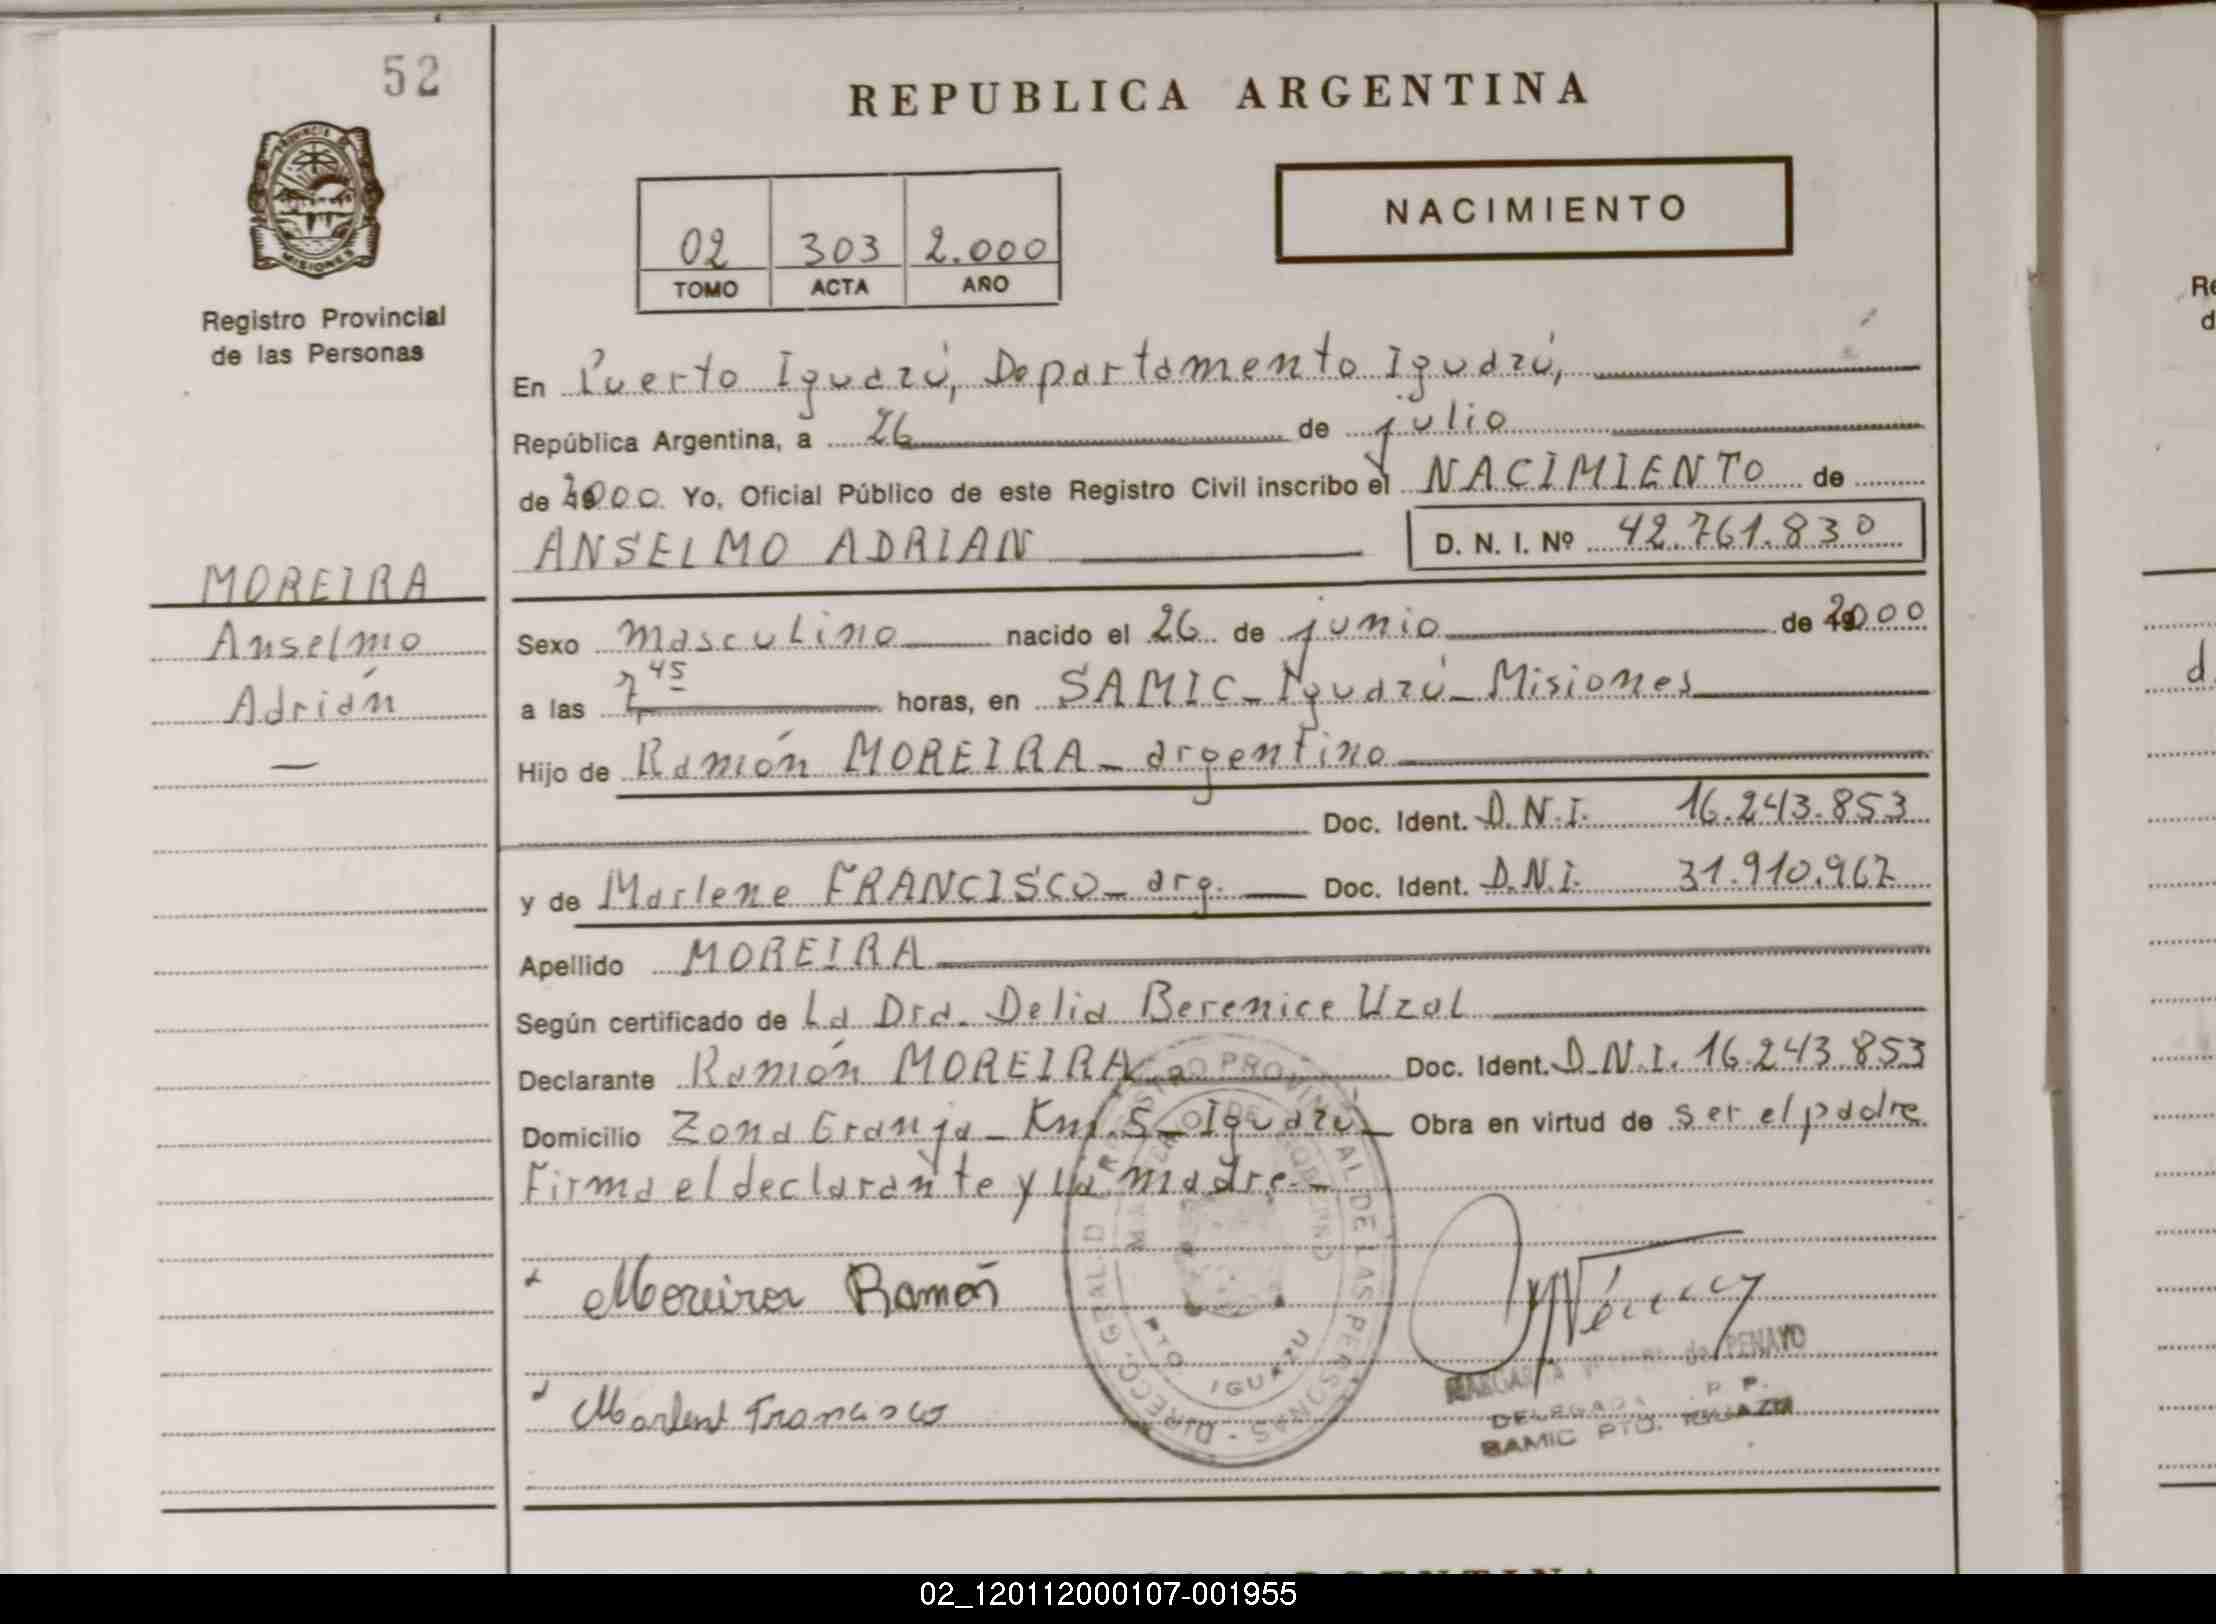 52
REPUBLICA ARGENTINA
PROVINCIA DE
MISIONES
Registro Provincial
de las Personas
NACIMIENTO
02 303 2.000
TOMO ACTA AÑO
En Puerto Iguazú, Departamento Iguazú,
República Argentina, a 26 de julio
de 2000 Yo, Oficial Público de este Registro Civil inscribo el NACIMIENTO de
ANSELMO ADRIAN D. N. I. Nº 42.761.830
MOREIRA
Anselmo
Adrián
—
Sexo masculino nacido el 26 de junio de 2000
a las 7 45 horas, en SAMIC_Iguazú_Misiones
Hijo de Ramón MOREIRA_argentino
Doc. Ident. D.N.I. 16.243.853
y de Marlene FRANCISCO_arg. Doc. Ident. D.N.I. 31.910.967
Apellido MOREIRA
Según certificado de La Dra. Delia Berenice Uzal
Declarante Ramón MOREIRA Doc. Ident. D.N.I. 16.243.853
Domicilio Zona Granja_Km.5_Iguazú_ Obra en virtud de ser el padre
Firma el declarante y la madre._
Moreira Ramón
Marlent Francisco
DIRECC. GRAL. D REGISTRO PROVINCIAL DE LAS PERSONAS
PTO. IGUAZU
MARGARITA de PENAYO
DELEGADA R. P. P.
SAMIC PTO. IGUAZU
02_120112000107-001955